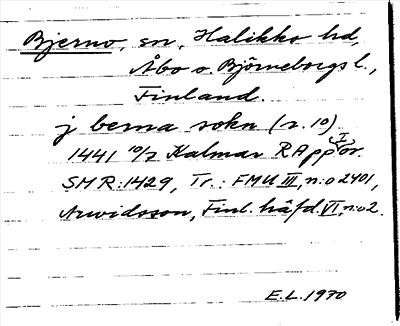 Bjerno, sn, Halikko hd,
Åbo o. Björneborgs l.,
Finland.
j berna sokn (r. 10)
1441 10/2 Kalmar RApp I or.
SMR: 1429, Tr.: FMU III, n:o 2401,
Arwidsson, Finl. häfd. VI, n:o 2.
E.L. 1970